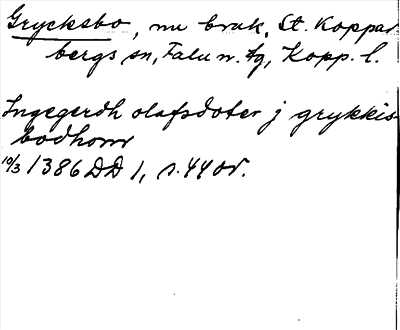 Grycksbo, nu bruk, St. Koppar
bergs sn, Falu n. tg, Kopp. l.
Ingegerdh olafsdoter j grykkis-
bodhom
10/3 1386 DD 1, s. 44 or.